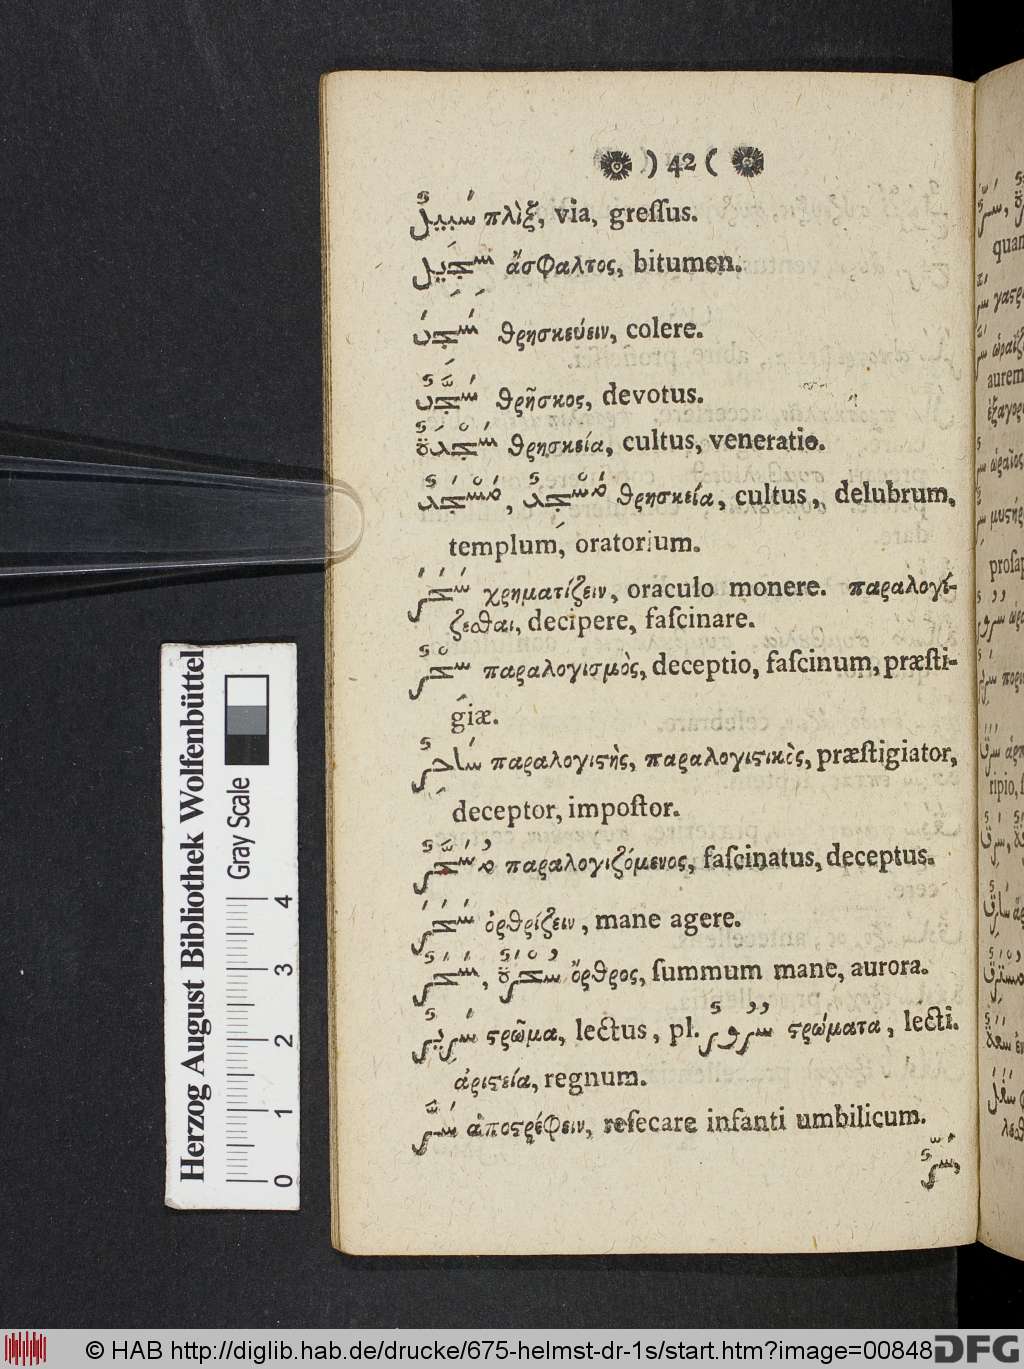 ) 42 (
سَبِيلٌ πλὶξ, via, greſſus.
سجِّيل ἄσφαλτος, bitumen.
سَجَدَ θρησκεύειν, colere.
سجّدٌ θρῆσκος, devotus.
سَجْدَةٌ θρησκεία, cultus, veneratio.
مَسْجَدٌ, مَسْجِدٌ θρησκεία, cultus, delubrum,
templum, oratorium.
سَحَرَ χρηματίζειν, oraculo monere. παραλογί-
ζεσθαι, decipere, faſcinare.
سحْرٌ παραλογισμὸς, deceptio, faſcinum, præſti-
giæ.
سَاحرٌ παραλογιςὴς, παραλογιςικὸς, præſtigiator,
deceptor, impoſtor.
مُسَحَّرٌ παραλογιζόμενος, faſcinatus, deceptus.
سَحَرَ ὀρθρίζειν, mane agere.
سَحَرٌ, سُحْرَةٌ ὄρθρος, ſummum mane, aurora.
سَرِيرٌ ςρῶμα, lectus, pl. سُرُورٌ ςρώματα, lecti.
ἀριςεία, regnum.
سَرَّ ἀποςρέφειν, reſecare infanti umbilicum.
سُرٌّ,
Herzog August Bibliothek Wolfenbüttel
Gray Scale
0 1 2 3 4
© HAB http://diglib.hab.de/drucke/675-helmst-dr-1s/start.htm?image=00848
DFG